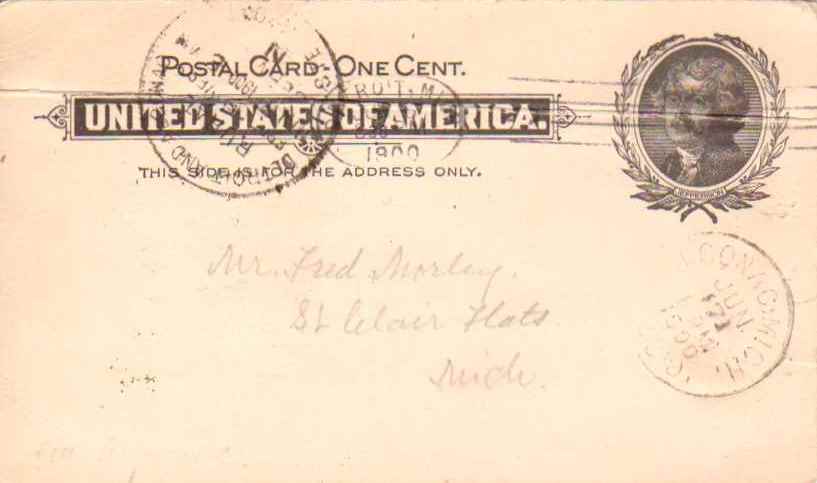 POSTAL CARD - ONE CENT.
UNITED STATES OF AMERICA.
THIS SIDE IS FOR THE ADDRESS ONLY.
JEFFERSON
1900
DETROIT AND
Mr. Fred Morley.
St Clair Flats
Mich.
MICH.
JUN
1900